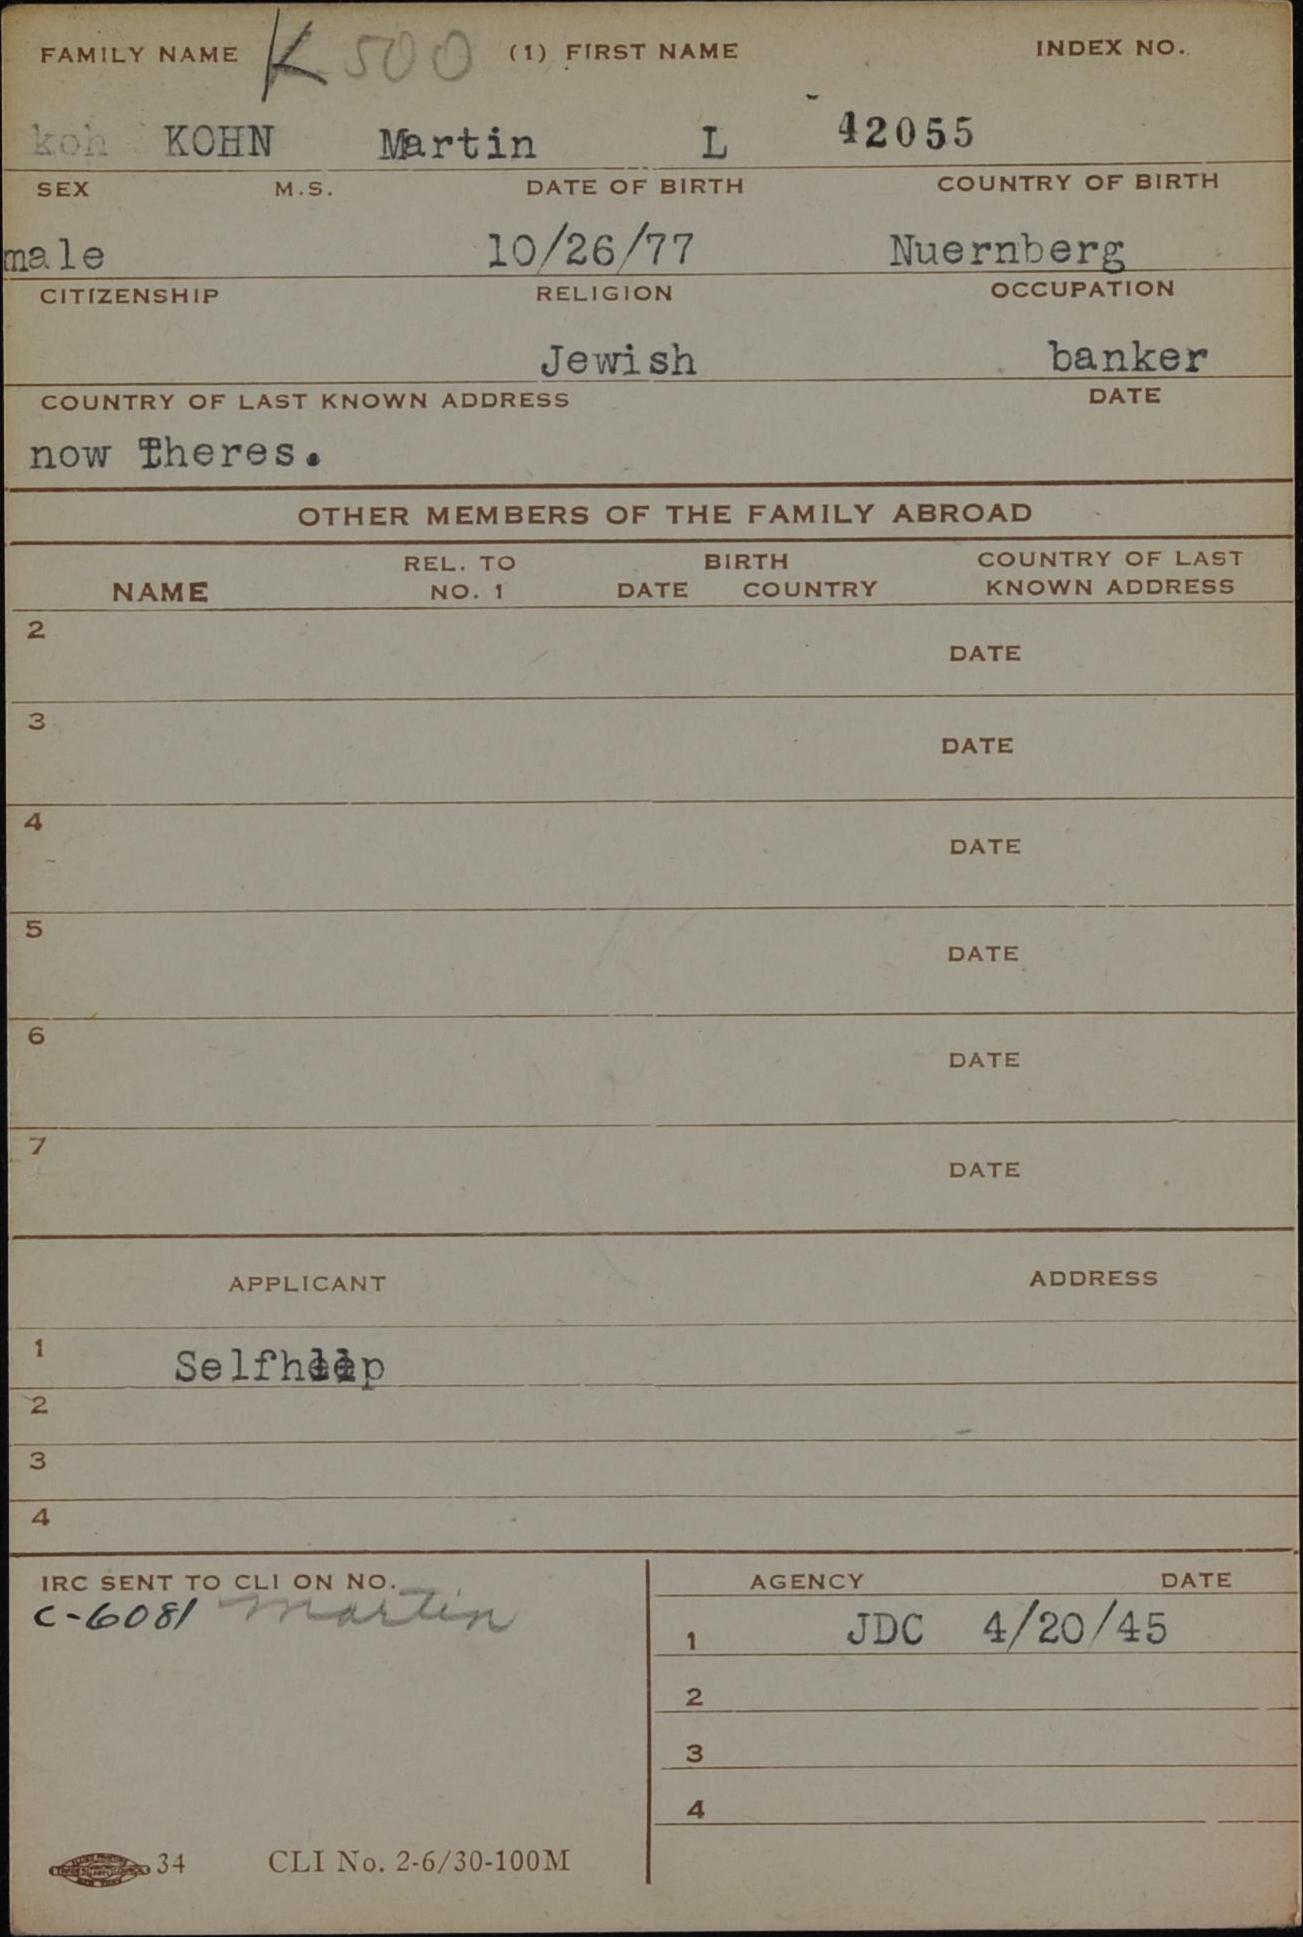 FAMILY NAME K 500 (1) FIRST NAME INDEX NO.
koh KOHN Martin L 42055
SEX M.S. DATE OF BIRTH COUNTRY OF BIRTH
male 10/26/77 Nuernberg
CITIZENSHIP RELIGION OCCUPATION
Jewish banker
COUNTRY OF LAST KNOWN ADDRESS DATE
now Theres.
OTHER MEMBERS OF THE FAMILY ABROAD
REL. TO BIRTH COUNTRY OF LAST
NAME NO. 1 DATE COUNTRY KNOWN ADDRESS
2 DATE
3 DATE
4 DATE
5 DATE
6 DATE
7 DATE
APPLICANT ADDRESS
1 Selfhelp
2
3
4
IRC SENT TO CLI ON NO. AGENCY DATE
C-6081 Martin
1 JDC 4/20/45
2
3
4
34 CLI No. 2-6/30-100M